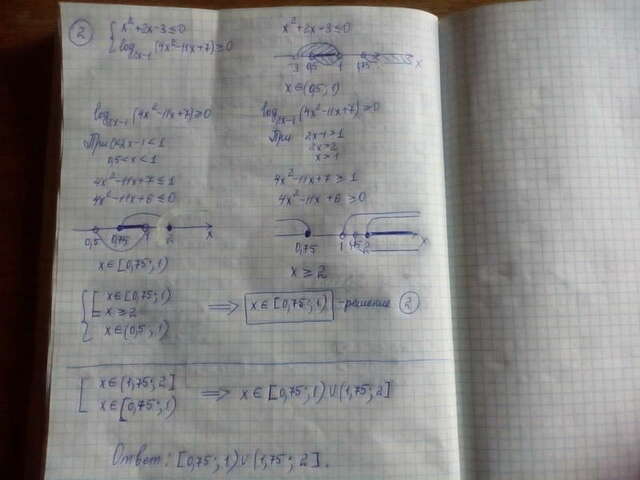 ② { x² + 2x - 3 ≤ 0
log₂ₓ₋₁(4x² - 11x + 7) ≥ 0
x² + 2x - 3 ≤ 0
-3 0,5 1 1,75 x
x ∈ (0,5; 1)
log₂ₓ₋₁(4x² - 11x + 7) ≥ 0
При 0<2x-1<1
0,5 < x < 1
4x² - 11x + 7 ≤ 1
4x² - 11x + 6 ≤ 0
0,5 0,75 1 2 x
x ∈ [0,75; 1)
log₂ₓ₋₁(4x² - 11x + 7) ≥ 0
При 2x-1>1
2x>2
x>1
4x² - 11x + 7 ≥ 1
4x² - 11x + 6 ≥ 0
0,75 1 1,75 2 x
x ≥ 2
{ [ x ∈ [0,75; 1)
x ≥ 2
x ∈ (0,5; 1)
⟹ x ∈ [0,75; 1) - решение ②
[ x ∈ (1,75; 2]
x ∈ [0,75; 1)
⟹ x ∈ [0,75; 1) ∪ (1,75; 2]
Ответ: [0,75; 1) ∪ (1,75; 2].